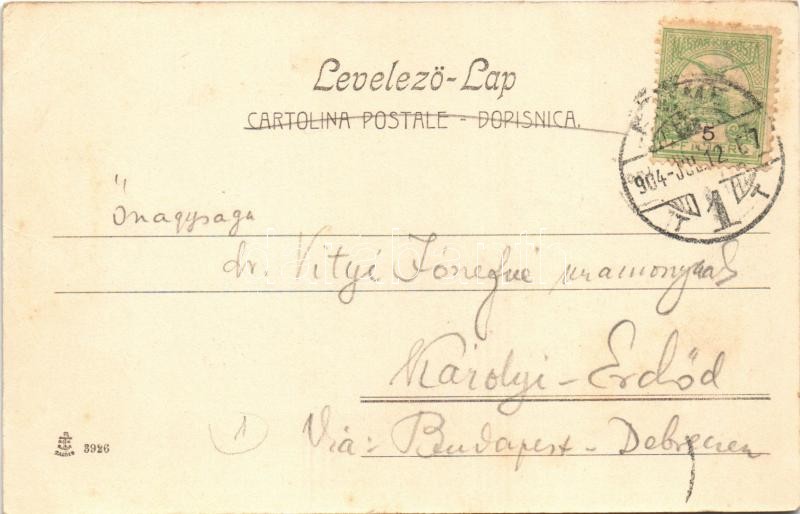 Levelező-Lap
CARTOLINA POSTALE - DOPISNICA.
MAGYAR KIR. POSTA
5
904-JUL.12
1
Őnagysága
dr. Vityi Józsefné uramonynak
Károlyi-Erdőd
Via: Budapest - Debreczen
1
3926